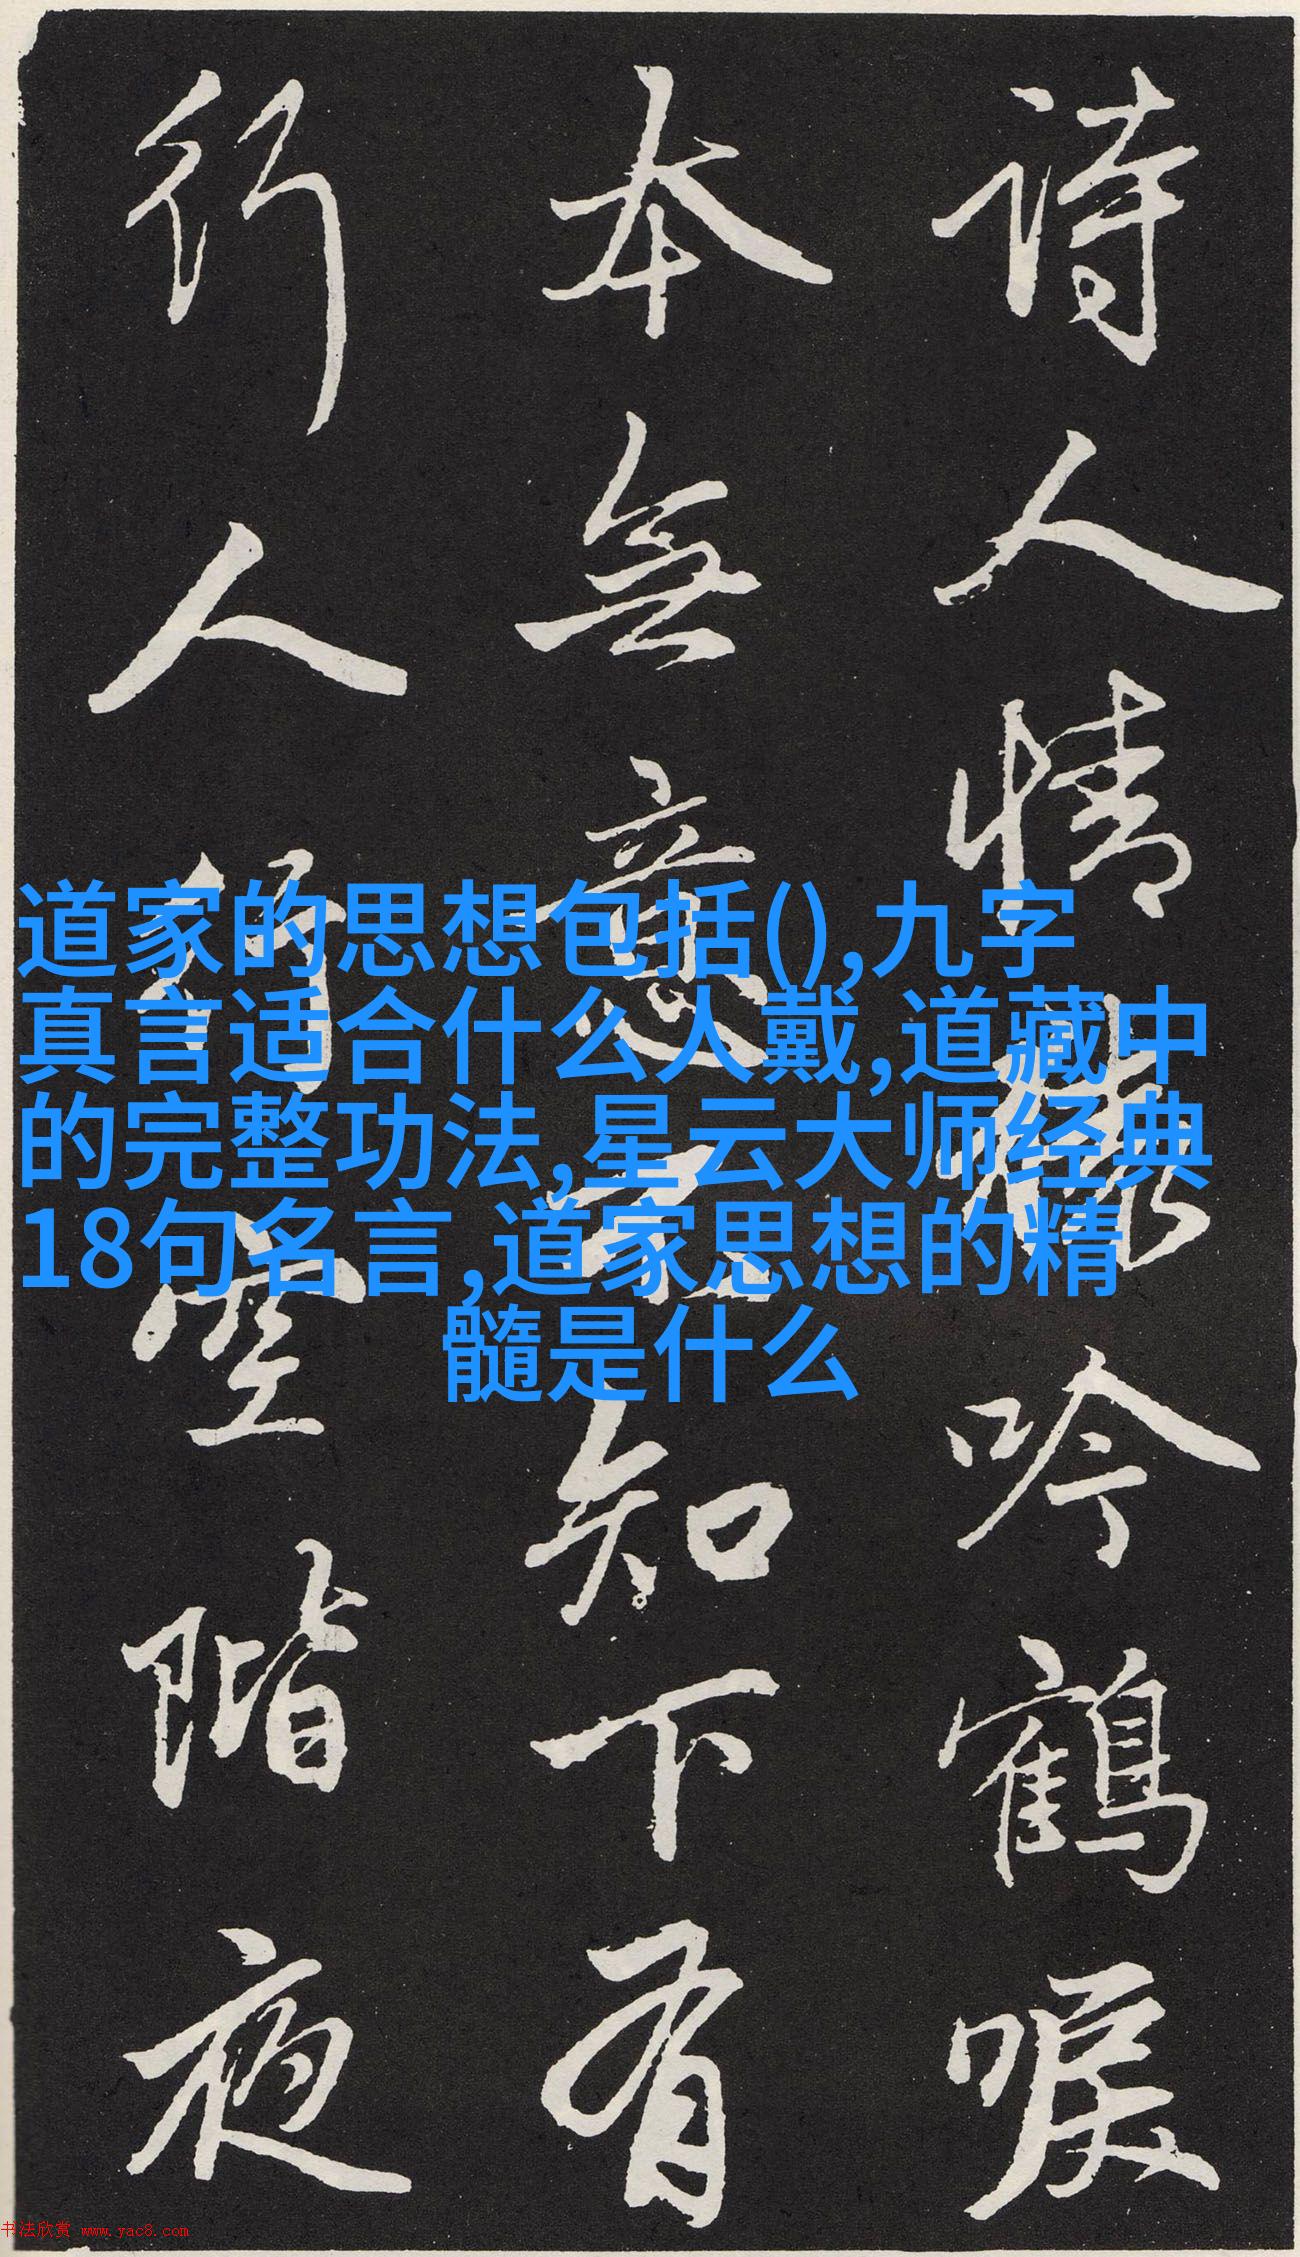 诗人情味吟鹤唳
本無意兴知下有
行人行空階夜
道家的思想包括(),九字
真言适合什么人戴,道藏中
的完整功法,星云大师经典
18句名言,道家思想的精
髓是什么
书法欣赏 www.yac8.com